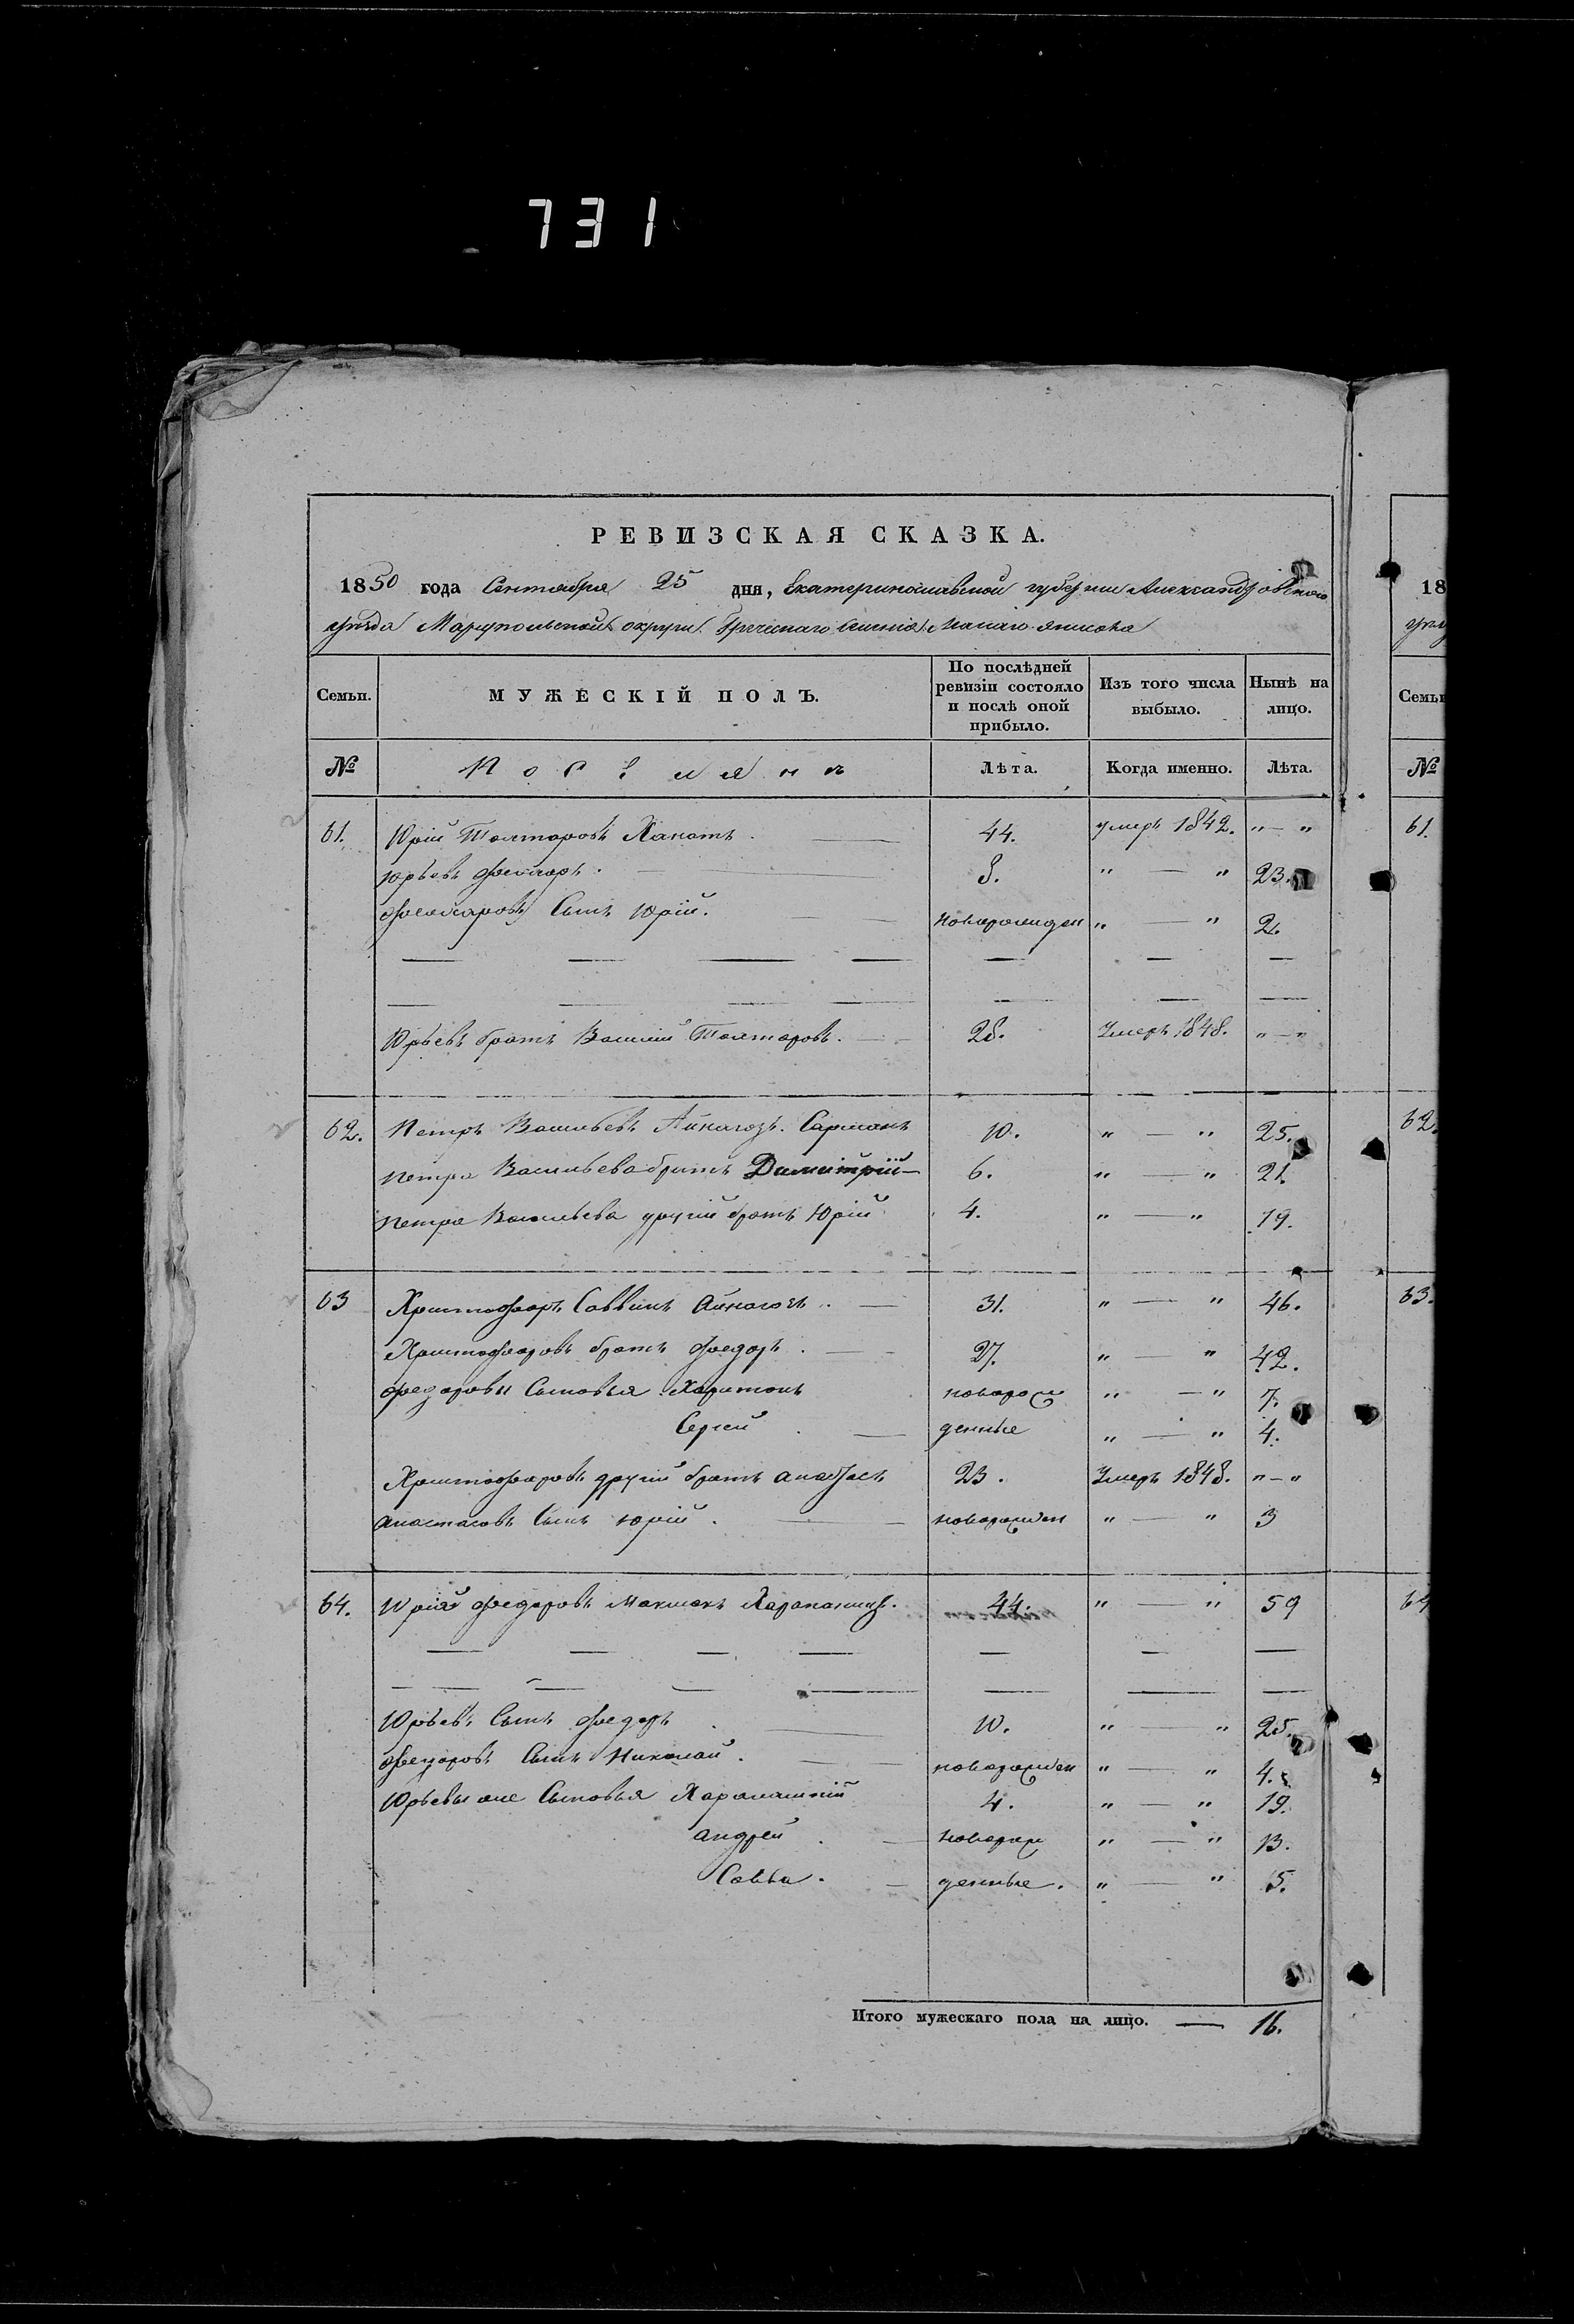 731
РЕВИЗСКАЯ СКАЗКА.
1850 года Сентября 25 дня, Екатеринославской губернии Александровскаго
уѣзда Маріупольской округи Греческаго селенія Малаго Янисоля
18
Семьи. МУЖЕСКІЙ ПОЛЪ. По послѣдней ревизіи состояло и послѣ оной прибыло. Изъ того числа выбыло. Нынѣ на лицо.
Семьи
№ Поселянъ Лѣта. Когда именно. Лѣта.
№
61. Юрій Тохтаровъ Ханатъ. — 44. умеръ 1842. „ — „
61.
Юрьевъ — 8. „ — „ 23.
сынъ Юрій. — новорожден „ — „ 2.
Юрьевъ братъ Василій Тохтаровъ. — 28. Умеръ 1848. „ — „
62. Петръ Васильевъ Айнагозъ. 10. „ — „ 25.
62.
Петра Васильева братъ Димитрій — 6. „ — „ 21.
Петра Васильева другій братъ Юрій 4. „ — „ 19.
63 Христофоръ Саввинъ Айнагозъ. — 31. „ — „ 46.
63.
Христофоровъ братъ Федоръ. — 27. „ — „ 42.
Федоровы Сыновья Харитонъ новорож „ — „ 7.
Сергей. — денные „ — „ 4.
Христофоровъ другій братъ Анастасъ 23. Умеръ 1848. „ — „
Анастасовъ Сынъ Юрій. — новорожден „ — „ 3
64. Юрій Федоровъ 44. „ — „ 59
64
Юрьевъ Сынъ Федоръ. — 10. „ — „ 25.
Федоровъ Сынъ Николай. — новорожден „ — „ 4.
Юрьевы же Сыновья Харлампій 4. „ — „ 19.
Андрей. — новорож „ — „ 13.
Савва. — денные. „ — „ 5.
Итого мужескаго пола на лицо. — 16.